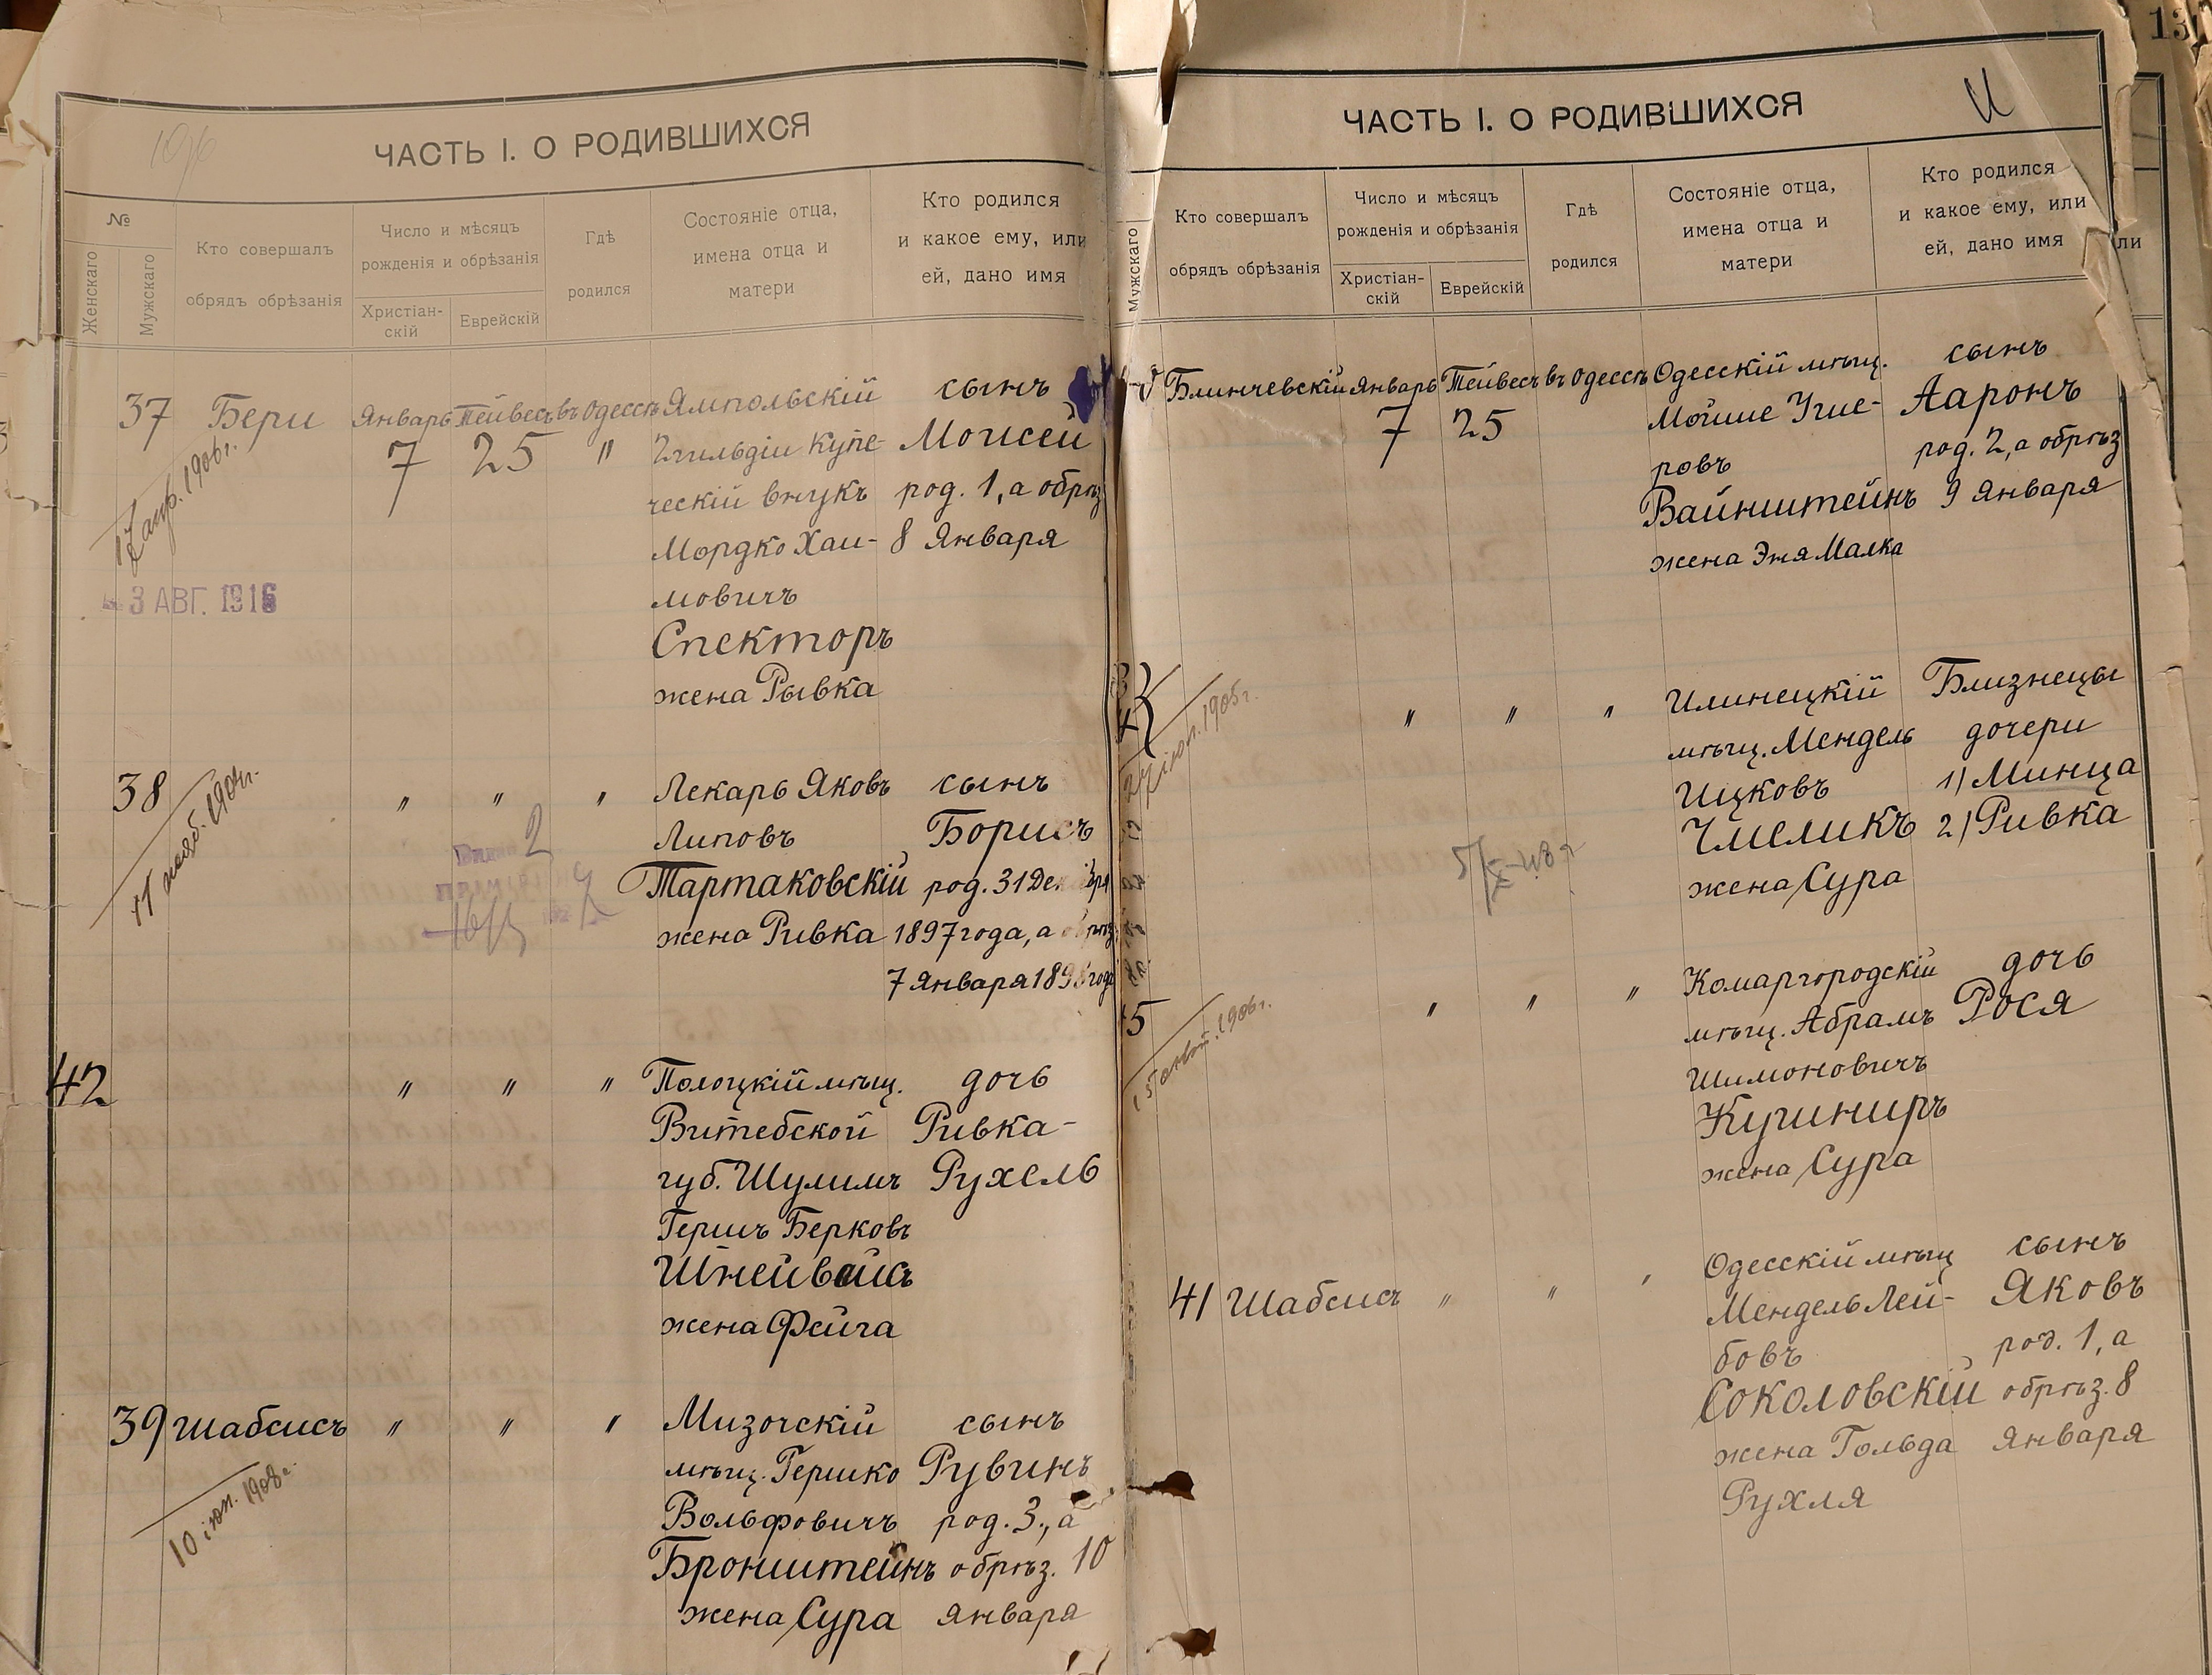 ЧАСТЬ I. О РОДИВШИХСЯ
№
Женскаго
Мужскаго
Кто совершалъ
обрядъ обрѣзанія
Число и мѣсяцъ
рожденія и обрѣзанія
Христіан-
скій
Еврейскій
Гдѣ
родился
Состояніе отца,
имена отца и
матери
Кто родился
и какое ему, или
ей, дано имя
37 Бери Январь Тейвесъ въ Одессѣ Ямпольскій сынъ
7 25 " 2 гильдіи купе- Моисей
ческій внукъ род. 1, а обрѣз
Мордко Хаи- 8 Января
мовичъ
Спекторъ
жена Рывка
1906 г.
3 АВГ. 1916
38 " " " Лекарь Яковъ сынъ
Липовъ Борисъ
Тартаковскій род. 31
жена Ривка 1897 года, а
7 Января
11 нояб. 1904 г.
42 " " " Полоцкій мѣщ. дочь
Витебской Ривка-
губ. Шулимъ Рухель
Гершъ Берковъ
Шнейвайсъ
жена Фейга
39 Шабсисъ " " " Мизочскій сынъ
мѣщ. Гершко Рувинъ
Вольфовичъ род. 3, а
Бронштейнъ обрѣз. 10
жена Сура Января
10 іюн. 1908 г.
13
ЧАСТЬ I. О РОДИВШИХСЯ
Мужскаго
Кто совершалъ
обрядъ обрѣзанія
Число и мѣсяцъ
рожденія и обрѣзанія
Христіан-
скій
Еврейскій
Гдѣ
родился
Состояніе отца,
имена отца и
матери
Кто родился
и какое ему, или
ей, дано имя
ли
Блинчевскій Январь Тейвесъ въ Одессѣ Одесскій мѣщ. сынъ
7 25 Мойше Ушe- Ааронъ
ровъ род. 2, а обрѣз
Вайнштейнъ 9 Января
жена Эня Малка
" " " Илинецкій Близнецы
мѣщ. Мендель дочери
Ицковъ 1) Минца
Чмеликъ 2) Ривка
жена Сура
27 іюл. 1905 г.
" " " Комаргородскій дочь
мѣщ. Абрамъ Рося
Шимоновичъ
Кушниръ
жена Сура
1906 г.
41 Шабсисъ " " " Одесскій мѣщ сынъ
Мендель Лей- Яковъ
бовъ род. 1, а
Соколовскій обрѣз. 8
жена Гольда Января
Рухля